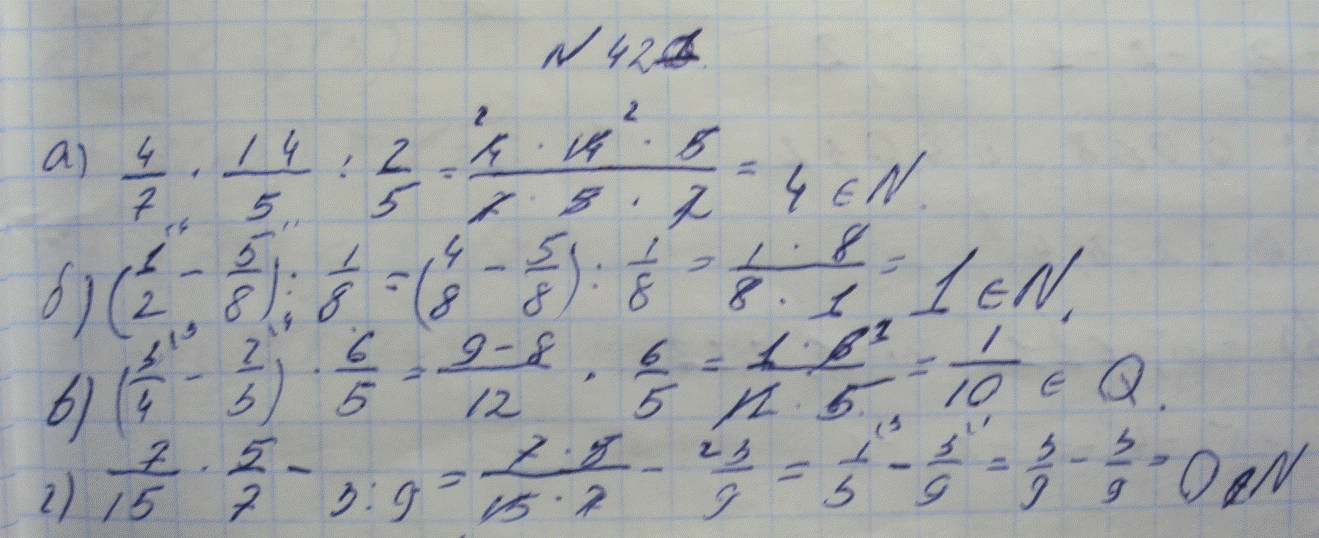 N 420.
а) 4/7 · 14/5 : 2/5 = 4 · 14 · 5 / 7 · 5 · 2 = 4 ∈ N.
б) (1/2 - 5/8) : 1/8 = (4/8 - 5/8) : 1/8 = 1 · 8 / 8 · 1 = 1 ∈ N.
в) (3/4 - 2/3) · 6/5 = 9-8/12 · 6/5 = 1 · 6 / 12 · 5 = 1/10 ∈ Q.
г) 7/15 · 5/7 - 3:9 = 7 · 5 / 15 · 7 - 3/9 = 1/3 - 3/9 = 3/9 - 3/9 = 0 ∉ N